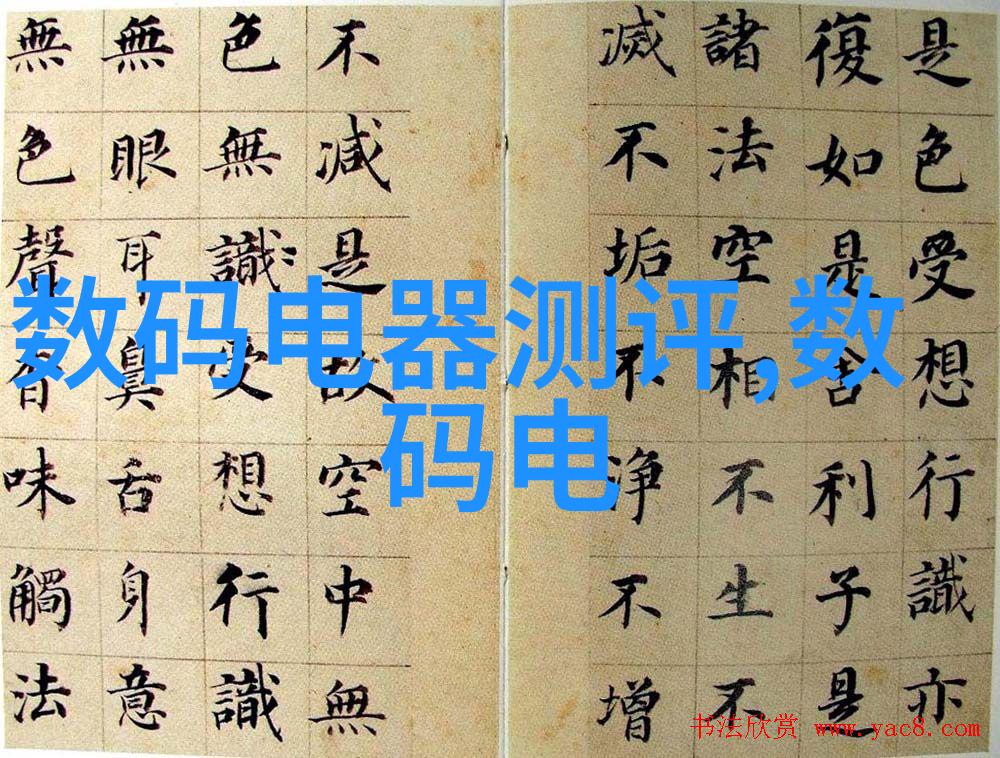 是色受想行識亦
復如是舍利子是
諸法空相不生不
滅不垢不淨不增
不減是故空中無
色無識受想行識
無眼耳鼻舌身意
無色聲香味觸法
数码电器测评,数
码电
书法欣赏 www.yac8.com